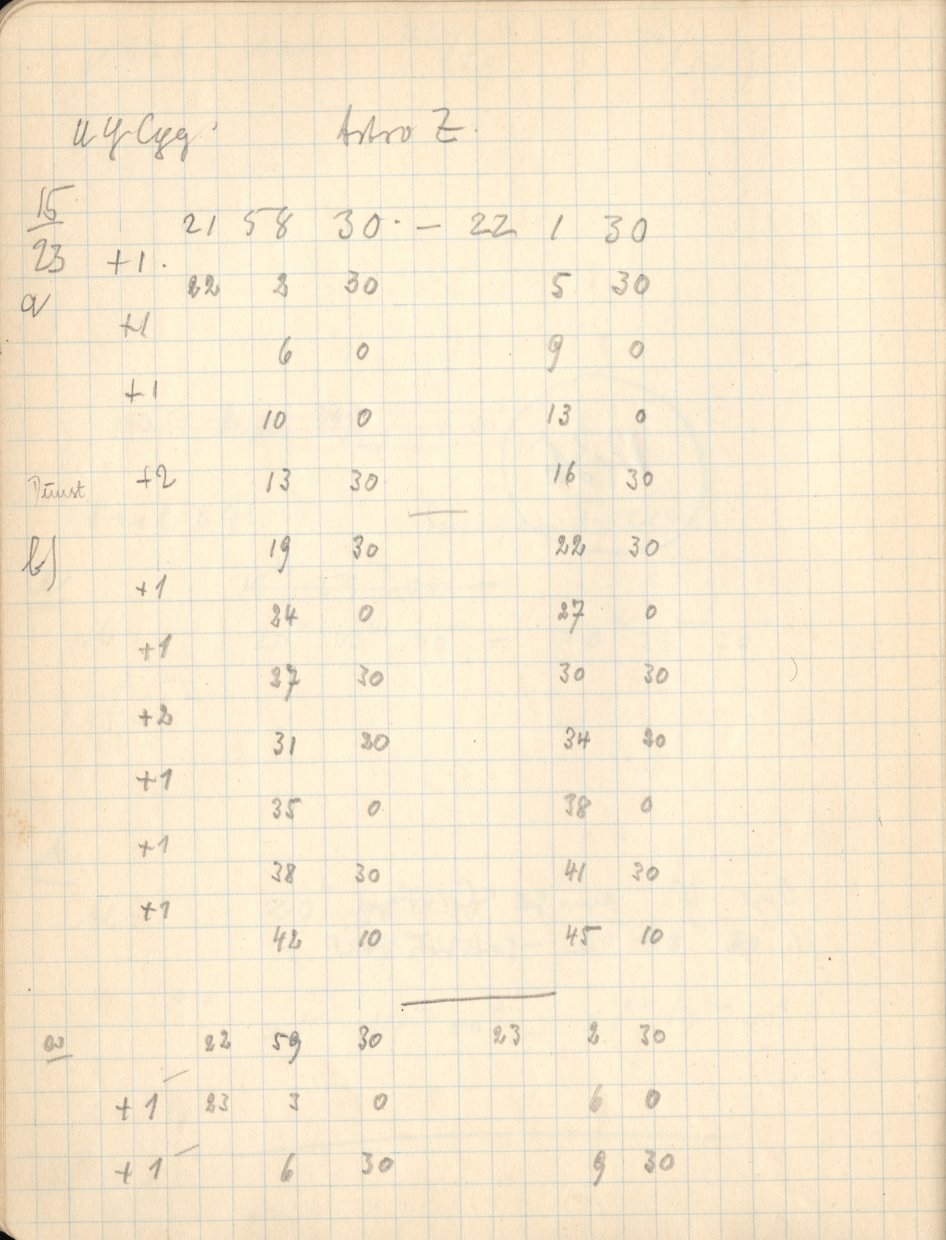 Cyg. Astro Z.
15
21 58 30 — 22 1 30
23 +1.
22 2 30 5 30
a
+1
6 0 9 0
+1
10 0 13 0
Dunst +2 13 30 16 30
b) 19 30 22 30
+1
24 0 27 0
+1
27 30 30 30
+2
31 20 34 20
+1
35 0 38 0
+1
38 30 41 30
+1
42 10 45 10
22 59 30 23 2 30
+1 23 3 0 6 0
+1 6 30 9 30